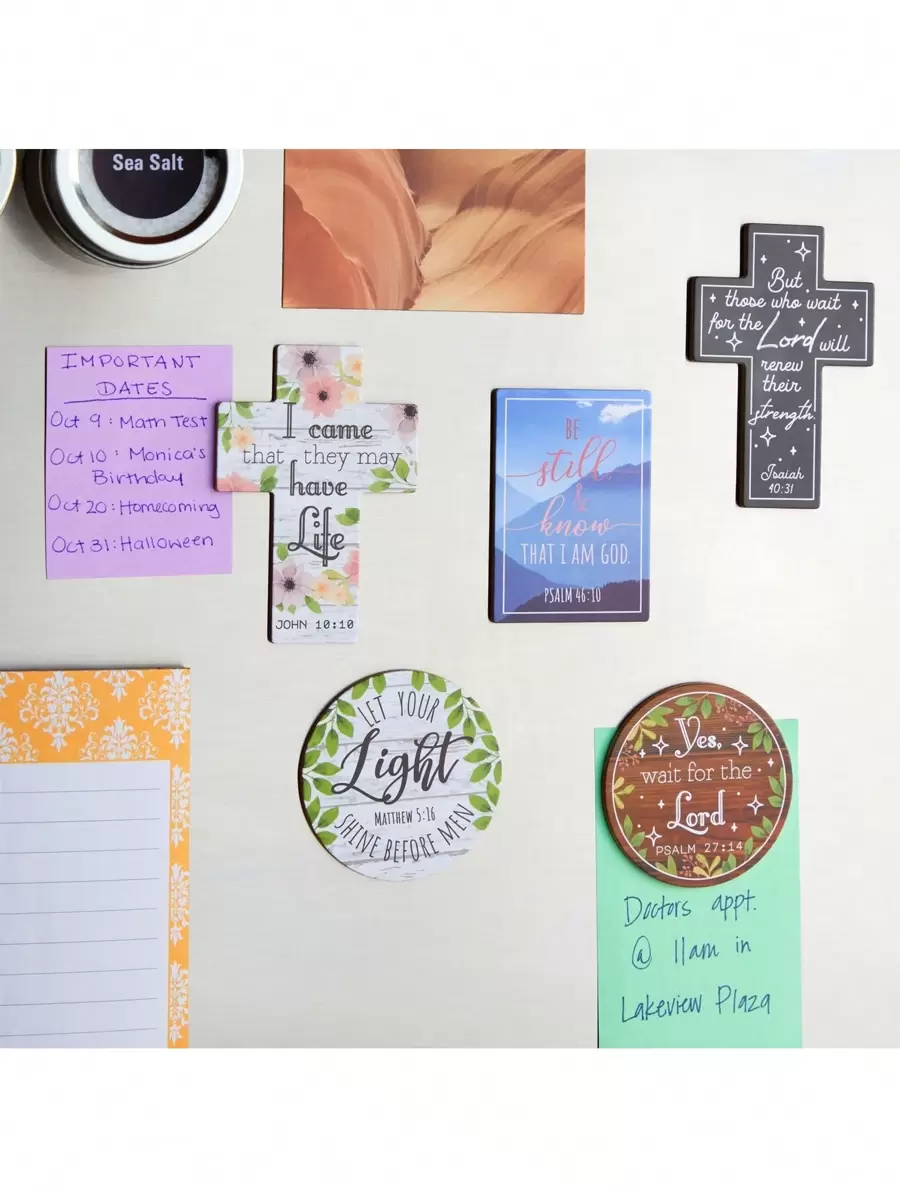 Sea Salt
But
those who wait
for the Lord will
renew
their
strength.
Isaiah
40:31
IMPORTANT
DATES
Oct 9: Math Test
Oct 10: Monica's
Birthday
Oct 20: Homecoming
Oct 31: Halloween
I came
that they may
have
Life
JOHN 10:10
BE
still
&
know
THAT I AM GOD.
PSALM 46:10
LET YOUR
Light
MATTHEW 5:16
SHINE BEFORE MEN
Yes,
wait for the
Lord
PSALM 27:14
Doctors appt.
@ 11am in
Lakeview Plaza